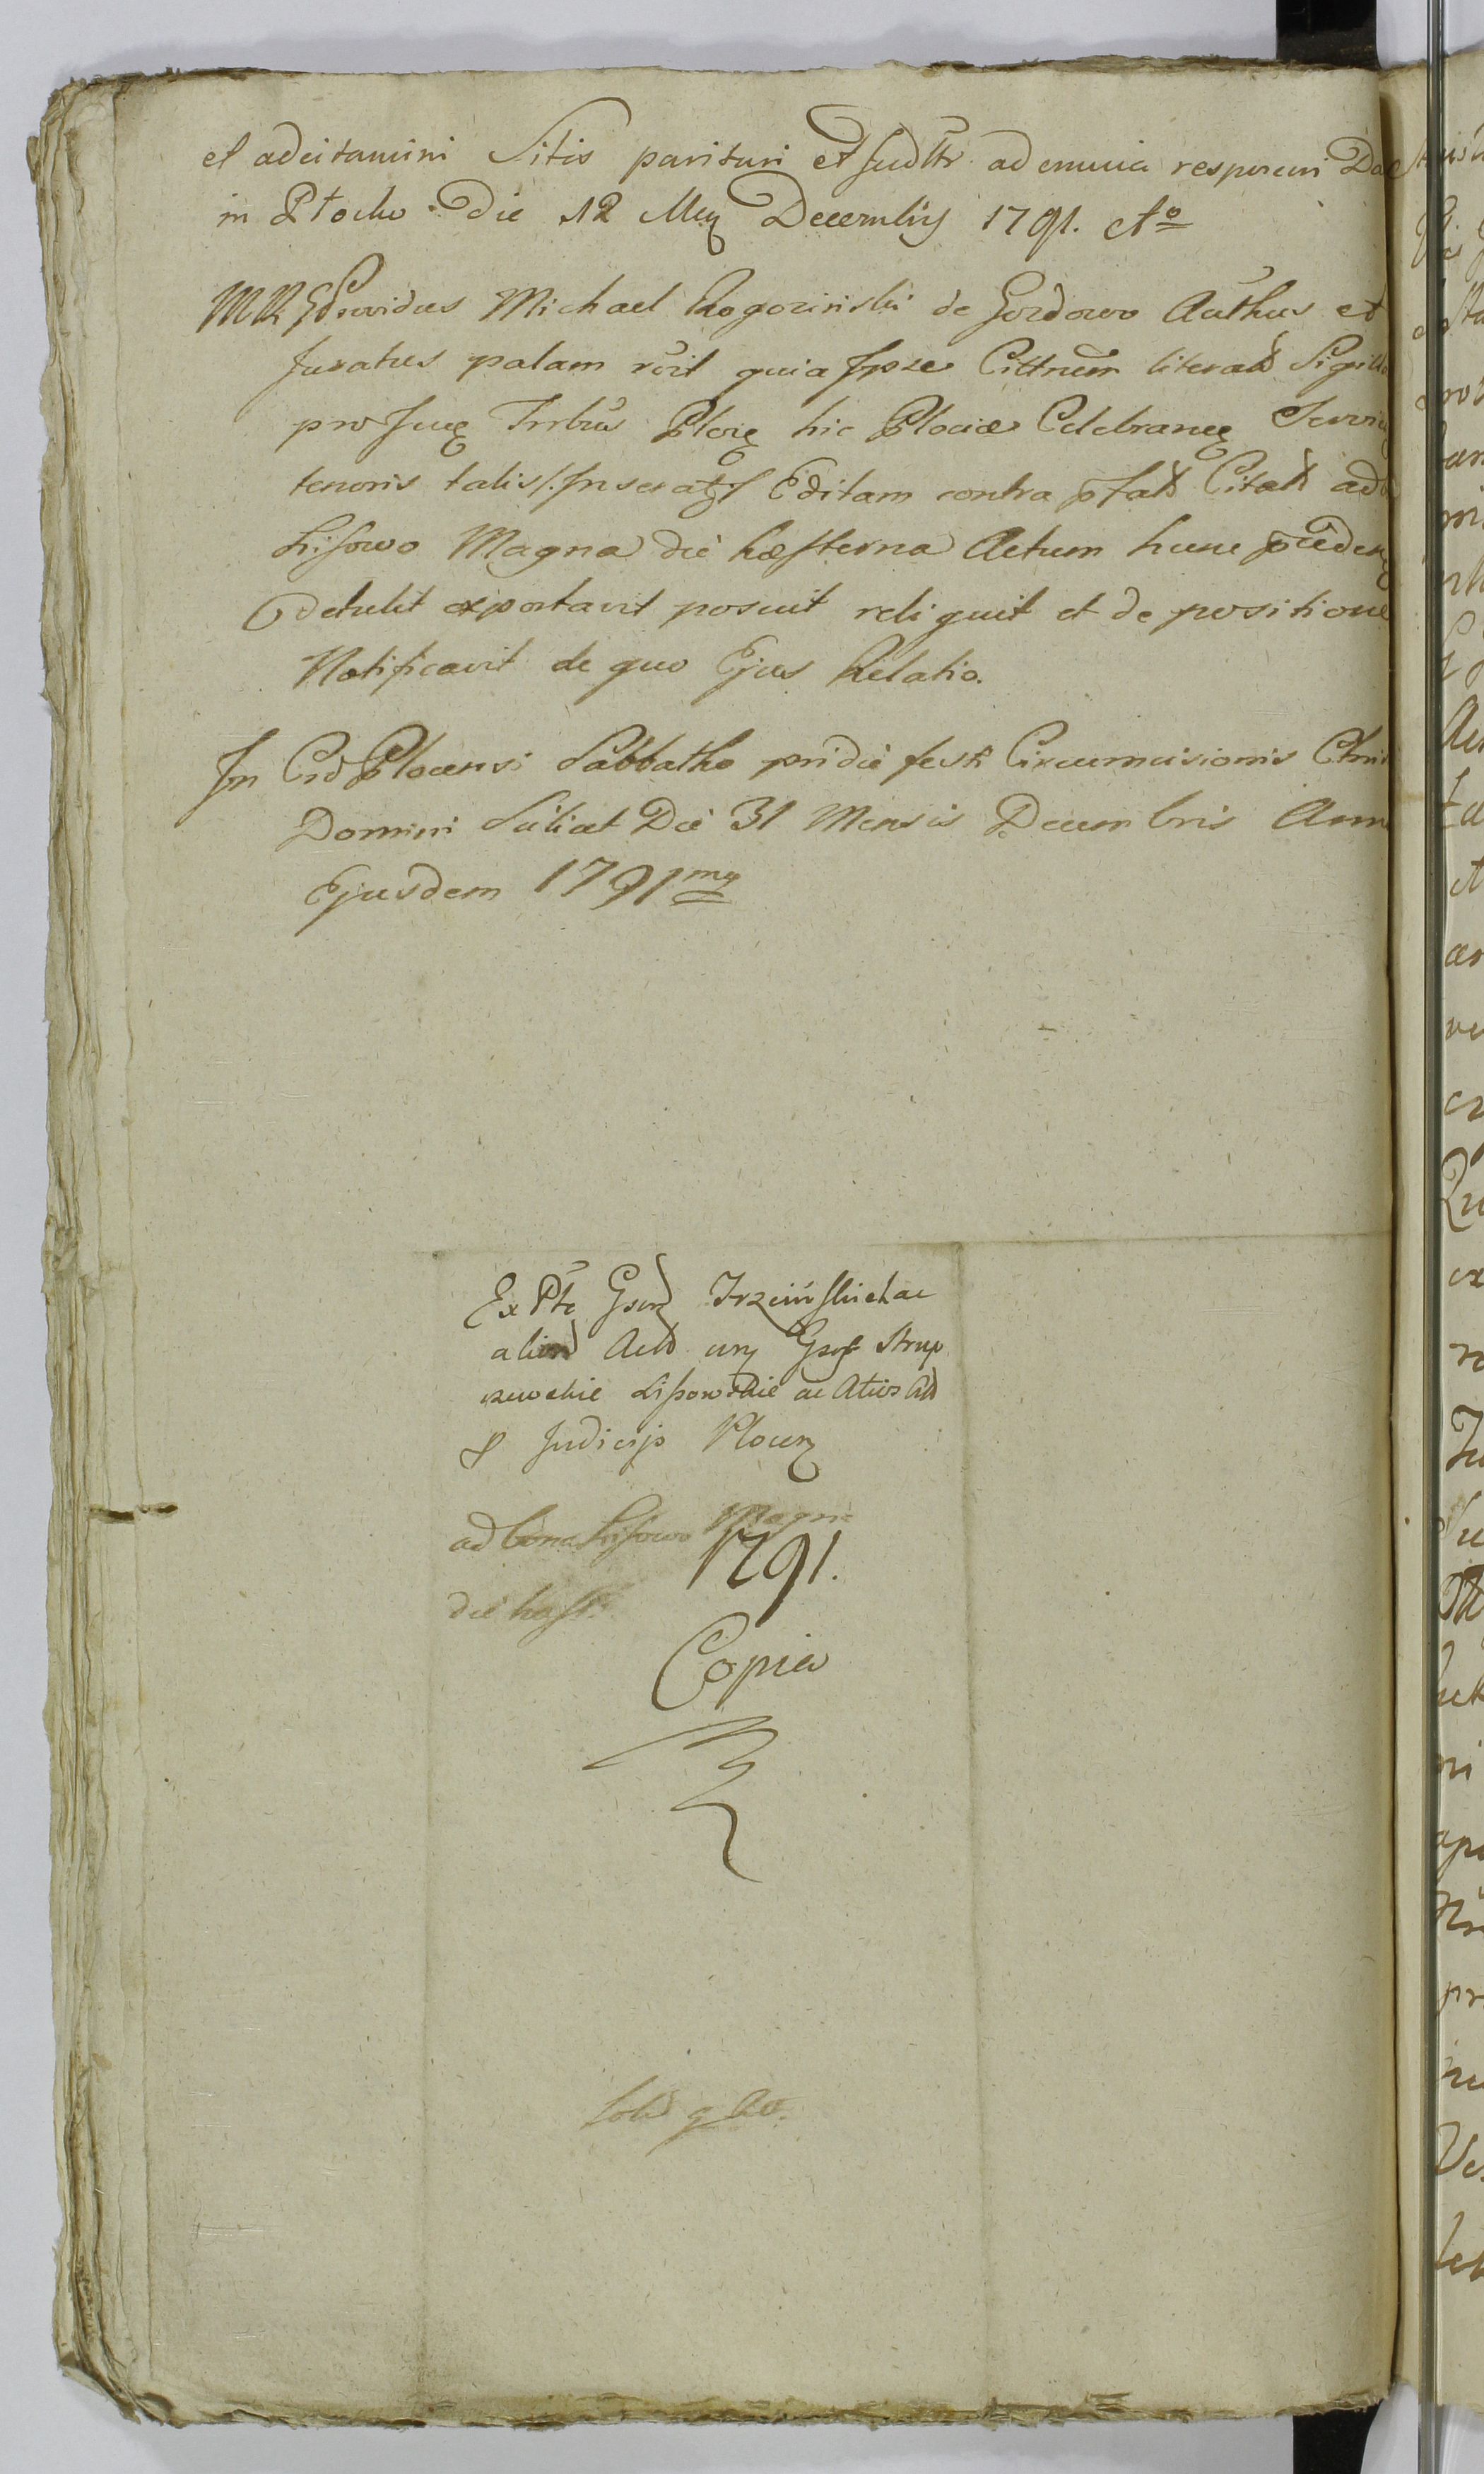 et adcitamini Sitis parituri et Judltr ad omnia responsuri Da
in Płocku Die 12 Mey Decembrij 1791. Ao
MR Providus Michael Rogozinski de Gozdowo Authus et
Juratus palam rōit quia Ipse Cittnem literatt Sigill
pro Juē Trrbus Plocię hic Plociæ Celebraneę Servi
tenoris talis /:Inseratz:/ Editam contra pfatt Citatt ad
Lisowo Magna die hæsterna Actum hunc pceden
detulit exportavit posuit reliquit et de positione
Notificavit de quo Ejus Relatio.
In Crd Plocensi Sabbatho pridie festi Circumcisionis Chri
Domini Scilicet Die 31 Mensis Decembris Ann
Ejusdem 1791mo
Ex Pte Gsorz Trzcińskich ac
alior Actt cum Gsor Strup
czewskie Lissowskie ac Alios Att
p Judicijs Plocen
ad bona Lisowo Magna
die hæst:
1791.
Copia